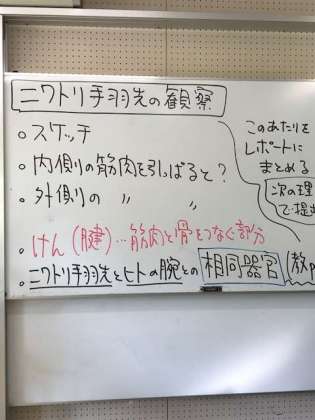 ニワトリ手羽先の観察
○スケッチ
○内側の筋肉を引っぱると?
○外側の 〃 〃
○けん(腱)…筋肉と骨をつなぐ部分
○ニワトリ手羽先とヒトの腕との相同器官(教p
このあたりを
レポートに
まとめる
次の理
で提出